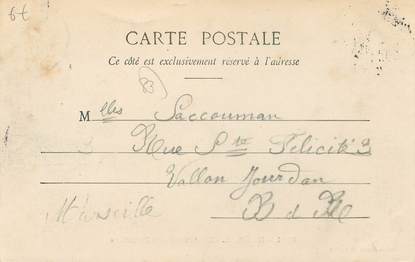 6€
CARTE POSTALE
Ce côté est exclusivement réservé à l'adresse
83
Mlles Saccouman
Rue Ste Félicité 3
Vallon Jourdan
Marseille B d R